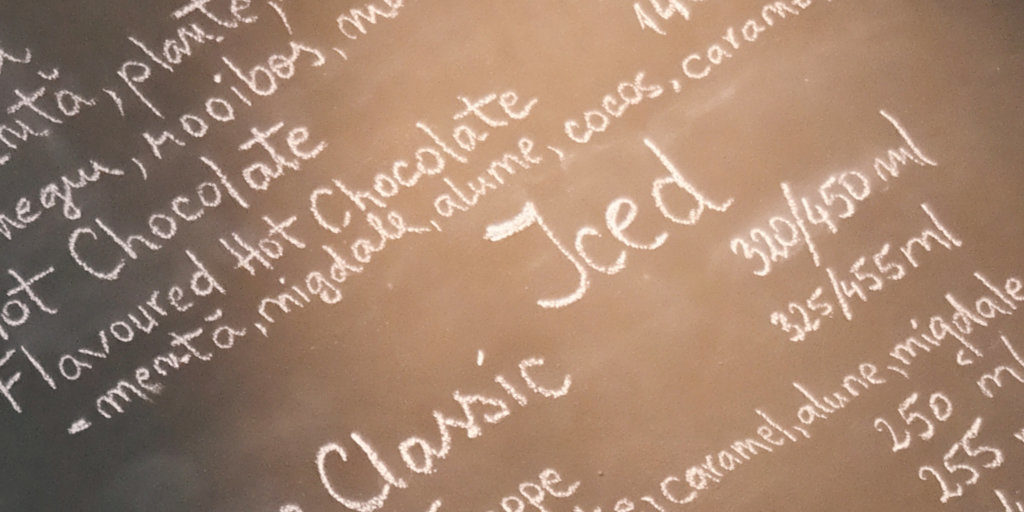 mentă, plante,
negru, rooibos,
Hot Chocolate
Flavoured Hot Chocolate
- mentă, migdale, alume, cocos, caramel
Iced
320/450 ml
325/455 ml
Classic
caramel, alune, migdale
250 ml
255